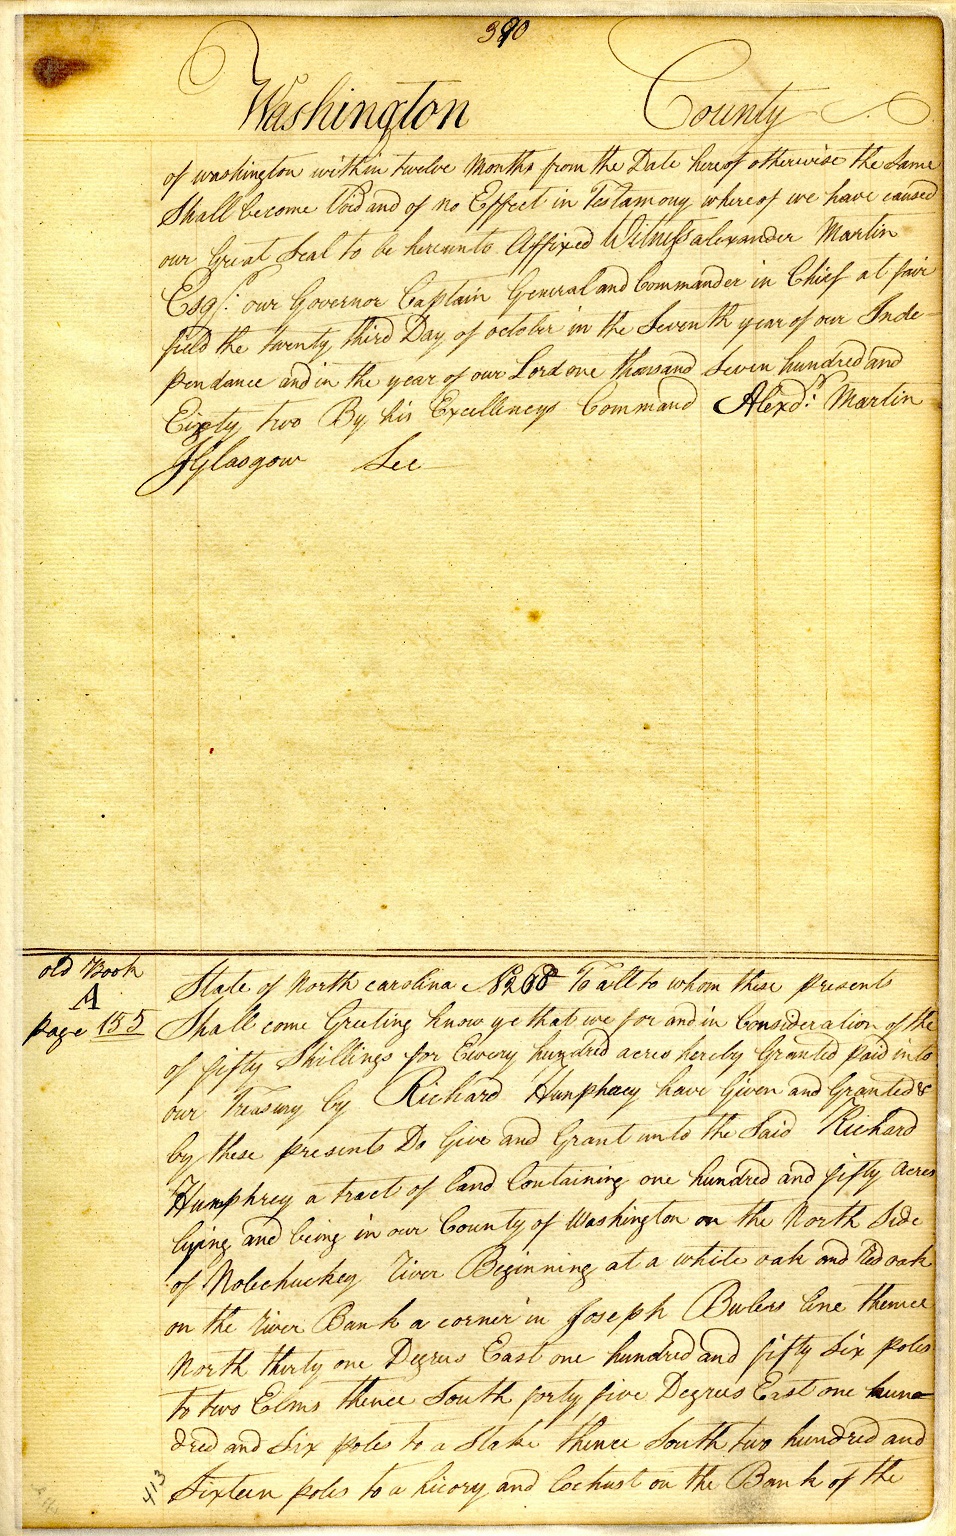 390
Washington County
of washington within twelve Months from the Date hereof otherwise the Same
Shall become Void and of no Effect in Testamony whereof we have caused
our Great Seal to be hereunto Affixed Witness alexander Martin
Esqr: our Governor Captain General and Commander in Chief at fair
field the twenty third Day of october in the Seventh year of our Inde-
pendance and in the year of our Lord one thousand Seven hundred and
Eighty two By his Excellencys Command Alexdr: Martin
JGlasgow Sec
old Book
A
page 155
State of North carolina No 268 To all to whom these presents
Shall come Greeting know ye that we for and in Consideration of the
of fifty Shillings for Ewery hundred acres hereby Granted paid into
our Treasury by Richard Humphrey have Given and Granted &
by these presents Do Give and Grant unto the Said Richard
Humphrey a tract of land Containing one hundred and fifty acres
lying and being in our County of Washington on the North Side
of Nolechuckey River Beginning at a white oak and Red oak
on the River Bank a corner in Joseph Bulers line thence
North thirty one Degrees East one hundred and fifty Six poles
to two Elms thence South forty five Degrees East one hun-
dred and Six poles to a Stake thence South two hundred and
Sixteen poles to a hicory and Lochust on the Bank of the
413